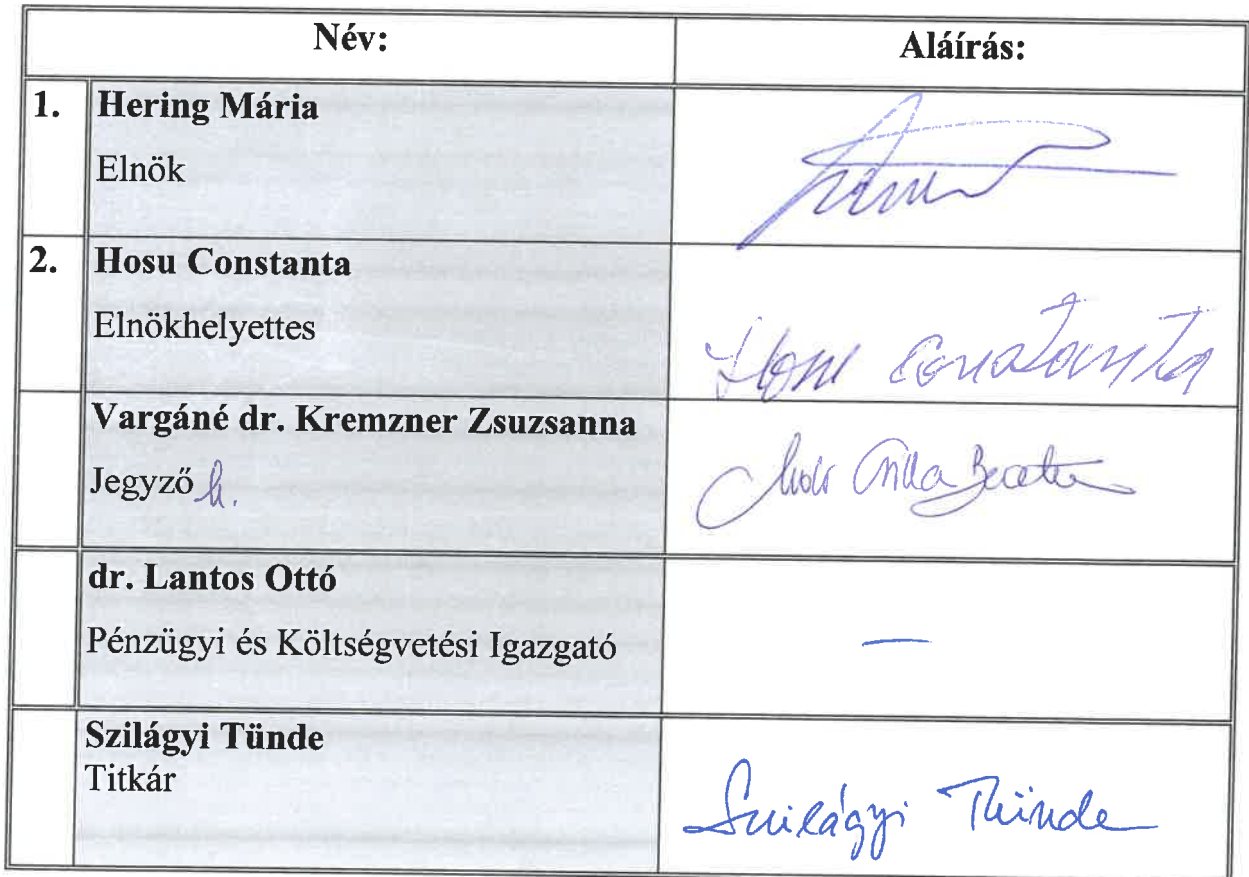 Név: Aláírás:
1. Hering Mária
Elnök
2. Hosu Constanta
Elnökhelyettes
Hosu Constanta
Vargáné dr. Kremzner Zsuzsanna
Jegyző h.
Csilla
dr. Lantos Ottó
Pénzügyi és Költségvetési Igazgató
—
Szilágyi Tünde
Titkár
Szilágyi Tünde